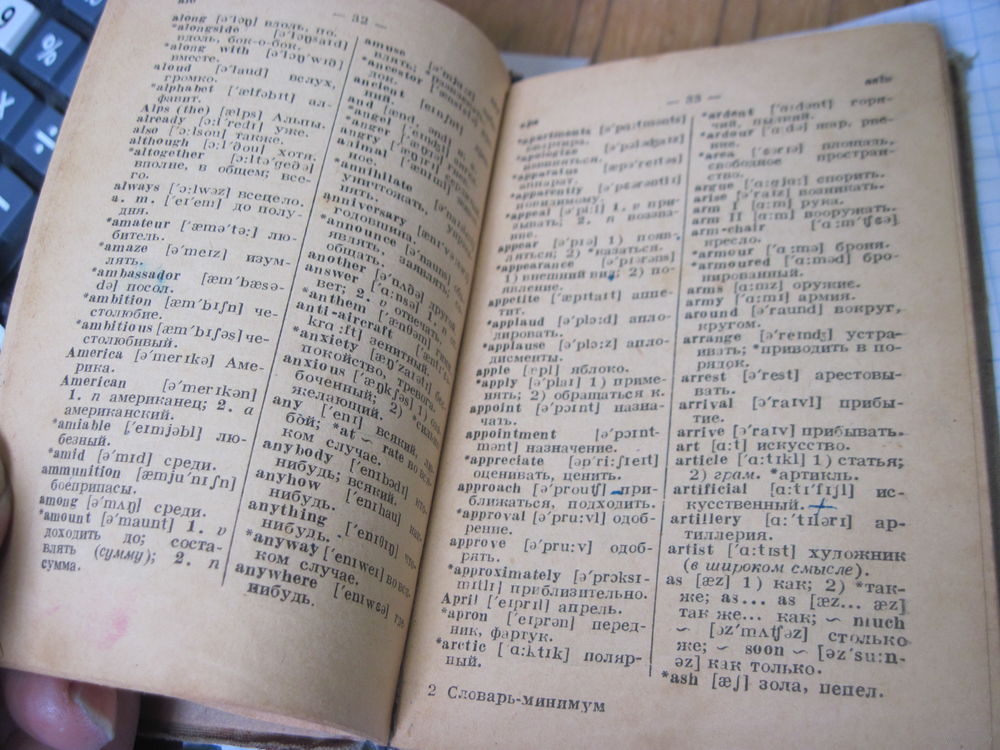 — 32 —
along [ə'lɔŋ] вдоль, по.
*alongside [ə'lɔŋsaɪd]
вдоль, бок-о-бок.
*along with [ə'lɔŋ'wɪð]
вместе.
aloud [ə'laud] вслух,
громко.
*alphabet ['ælfəbɪt] ал-
фавит.
Alps (the) [ælps] Альпы.
already [ɔ:l'redɪ] уже.
also ['ɔ:lsou] также.
although [ɔ:l'ðou] хотя.
*altogether [ɔ:ltə'geðə]
вполне, в общем; все-
го.
always ['ɔ:lwəz] всецело.
a. m. ['eɪ'em] до полу-
дня.
*amateur ['æmə'tə:] лю-
битель.
*amaze [ə'meɪz] изум-
лять.
*ambassador [æm'bæsə-
də] посол.
*ambition [æm'bɪʃn] че-
столюбие.
*ambitious [æm'bɪʃəs] че-
столюбивый.
America [ə'merɪkə] Аме-
рика.
American [ə'merɪkən]
1. n американец; 2. a
американский.
*amiable ['eɪmjəbl] лю-
безный.
*amid [ə'mɪd] среди.
ammunition [æmju'nɪʃn]
боеприпасы.
among [ə'mʌŋ] среди.
*amount [ə'maunt] 1. v
доходить до; соста-
влять (сумму); 2. n
сумма.
amuse
влять;
*ancestor
док.
ancient ['eɪnʃnt]
ний.
and [ænd, ənd]
*angel
*anger
angry
animal
ное.
*annihilate
уничтожать,
anniversary
годовщина.
*announce [ə'nauns]
являть, заявлять;
общать.
another [ə'nʌðə] другой
answer ['ɑ:nsə] 1. n
вет; 2. v отвечать.
*anthem ['ænθəm]
anti-aircraft
krɑ:ft] зенитный.
*anxiety [æŋ'zaɪətɪ]
покойство, тревога.
anxious ['æŋkʃəs] 1)
боченный; 2)
желающий.
any ['enɪ] всякий,
бой; *at ~ rate во вс
ком случае.
anybody ['enɪbɔdɪ] кто-
нибудь; всякий.
anyhow ['enɪhau]
нибудь.
anything ['enɪθɪŋ] что-
нибудь.
*anyway ['enɪweɪ] во вся-
ком случае.
anywhere ['enɪwɛə] где-
нибудь.
— 33 —
*apartments [ə'pɑ:tmənts]
*apologize
*apparatus [æpə'reɪtəs]
аппарат.
*apparently
*appeal [ə'pi:l] 1. v
зывать; 2. n воззва-
ние.
appear [ə'pɪə] 1) появ-
ляться; 2) *казаться.
*appearance [ə'pɪərəns]
1) внешний вид; 2) по-
явление.
appetite ['æpɪtaɪt] аппе-
тит.
*applaud [ə'plɔ:d] апло-
дировать.
*applause [ə'plɔ:z] апло-
дисменты.
apple [æpl] яблоко.
*apply [ə'plaɪ] 1) приме-
нять; 2) обращаться к.
appoint [ə'pɔɪnt] назна-
чать.
appointment [ə'pɔɪnt-
mənt] назначение.
*appreciate [əp'ri:ʃɪeɪt]
оценивать, ценить.
approach [ə'prouʧ] при-
ближаться, подходить.
*approval [ə'pru:vl] одоб-
рение.
approve [ə'pru:v] одоб-
рять.
*approximately [ə'prɔksɪ-
mɪtlɪ] приблизительно.
April ['eɪprɪl] апрель.
*apron ['eɪprən] перед-
ник, фартук.
*arctic ['ɑ:ktɪk] поляр-
ный.
*ardent ['ɑ:dənt] горя-
чий, пылкий.
*ardour ['ɑ:də] жар, рве-
ние.
*area ['ɛərɪə] площадь,
свободное простран-
ство.
argue ['ɑ:gju:] спорить.
arise [ə'raɪz] возникать.
arm I [ɑ:m] рука.
arm II [ɑ:m] вооружать.
arm-chair ['ɑ:m'ʧɛə]
кресло.
*armour ['ɑ:mə] броня.
*armoured ['ɑ:məd] бро-
нированный.
arms [ɑ:mz] оружие.
army ['ɑ:mɪ] армия.
around [ə'raund] вокруг,
кругом.
arrange [ə'reɪnʤ] устра-
ивать; *приводить в по-
рядок.
arrest [ə'rest] арестовы-
вать.
arrival [ə'raɪvl] прибы-
тие.
arrive [ə'raɪv] прибывать.
art [ɑ:t] искусство.
article ['ɑ:tɪkl] 1) статья;
2) грам. *артикль.
artificial [ɑ:tɪ'fɪʃl] ис-
кусственный.
artillery [ɑ:'tɪlərɪ] ар-
тиллерия.
artist ['ɑ:tɪst] художник
(в широком смысле).
as [æz] 1) как; 2) *так-
же; as... as [æz... æz]
так же... как; ~ much
~ [əz'mʌʧəz] столько
же; ~ soon ~ [əz'su:n-
əz] как только.
*ash [æʃ] зола, пепел.
2 Словарь-минимум